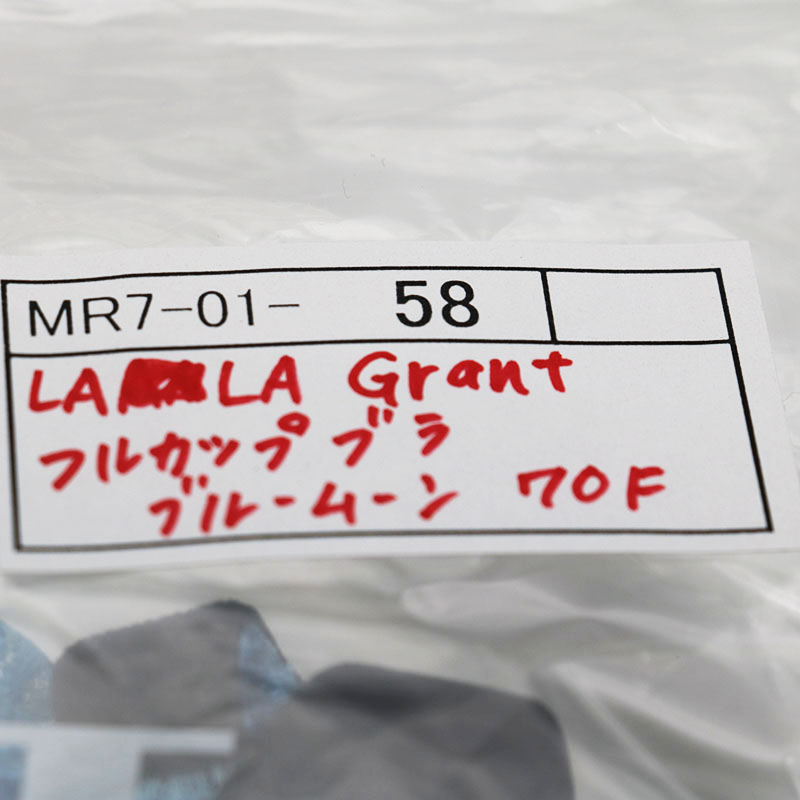 MR7-01- 58
LA LA Grant
フルカップブラ
ブルームーン 70F